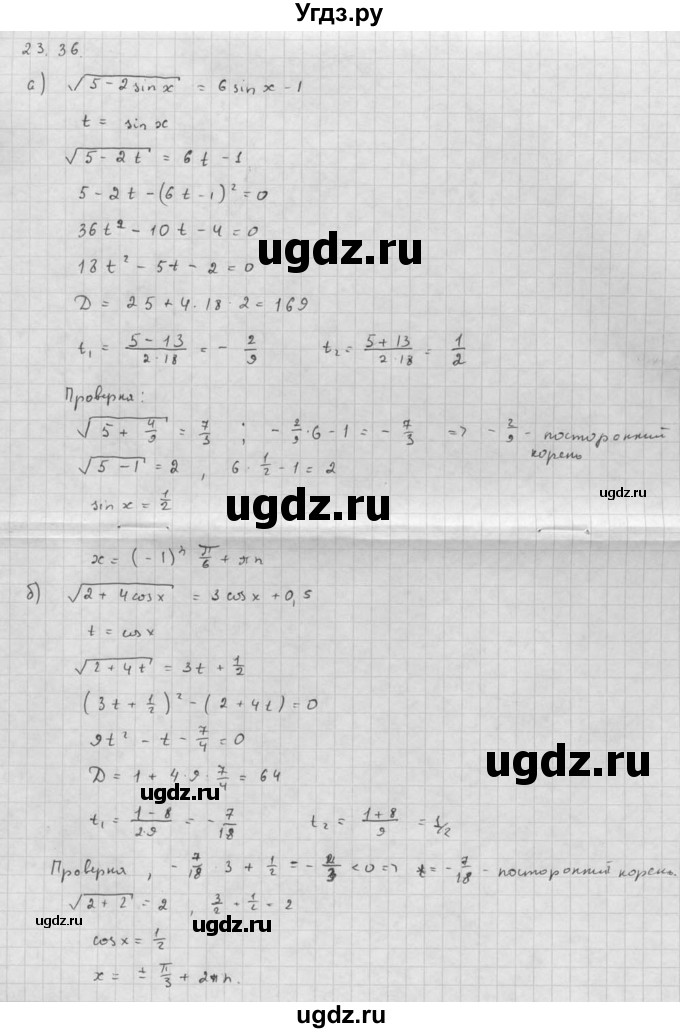 Угдз.ру
23.36.
а) √(5 - 2sin x) = 6 sin x - 1
t = sin x
√(5 - 2t) = 6t - 1
5 - 2t - (6t - 1)² = 0
36t² - 10t - 4 = 0
ugdz.ru
18t² - 5t - 2 = 0
D = 25 + 4·18·2 = 169
t₁ = (5 - 13)/(2·18) = - 2/9    t₂ = (5 + 13)/(2·18) = 1/2
Проверка:
√(5 + 4/9) = 7/3 ; - 2/9·6 - 1 = - 7/3 => - 2/9 - посторонний корень
√(5 - 1) = 2 , 6·1/2 - 1 = 2
ugdz.ru
sin x = 1/2
ugdz.ru
x = (-1)ⁿ π/6 + πn
б) √(2 + 4cos x) = 3 cos x + 0,5
t = cos x
√(2 + 4t) = 3t + 1/2
(3t + 1/2)² - (2 + 4t) = 0
9t² - t - 7/4 = 0
ugdz.ru
D = 1 + 4·9·7/4 = 64
ugdz.ru
t₁ = (1 - 8)/(2·9) = - 7/18    t₂ = (1 + 8)/9 = 1/2
Проверка, - 7/18 · 3 + 1/2 = - 2/3 < 0 => t = - 7/18 - посторонний корень.
√(2 + 2) = 2 , 3/2 + 1/2 = 2
ugdz.ru
cos x = 1/2
x = ± π/3 + 2πn.
ugdz.ru
ugdz.ru